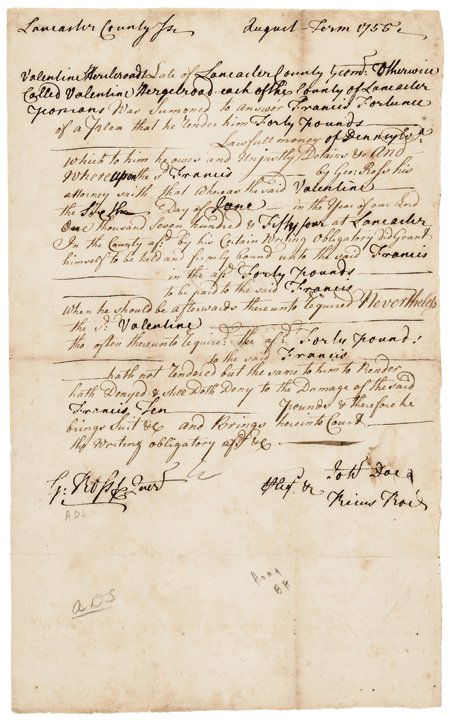 Lancaster County Ss. August Term 1755
Valentine Herclroadt Late of Lancaster County Yeom. Otherwise
Called Valentine Hergelroad each of the County of Lancaster
yeomans Was Sumoned to answer Francis Fortune
of a Plea that he Render him Forty pounds
Lawfull money of Pennsylva
which to him he owes and Unjustly Detains &c And
Whereupon the sd Francis by Geo: Ross his
attorney saith that Whereas the said Valentine
the Sixth Day of June in the Year of our Lord
One thousand Seven hundred & Fifty four at Lancaster
In the County afd. by his Certain Writing Obligatory did Grant
himself to be held and firmly bound unto the said Francis
in the afd. Forty pounds
to be paid to the said Francis
When he should be afterwards thereunto Required Nevertheless
the sd. Valentine
tho often thereunto Required the afd. Forty pounds
to the said Francis
hath not Rendered but the same to him to Render
hath Denyed & still Doth Deny to the Damage of the said
Francis Ten pounds & therefore he
brings Suit &c and Brings here into Court
the Writing obligatory afd &c
G: Ross pr Quer Joh. Doe
Pleg. &c Richd Roe
ADS
ADS
Hoag
BH